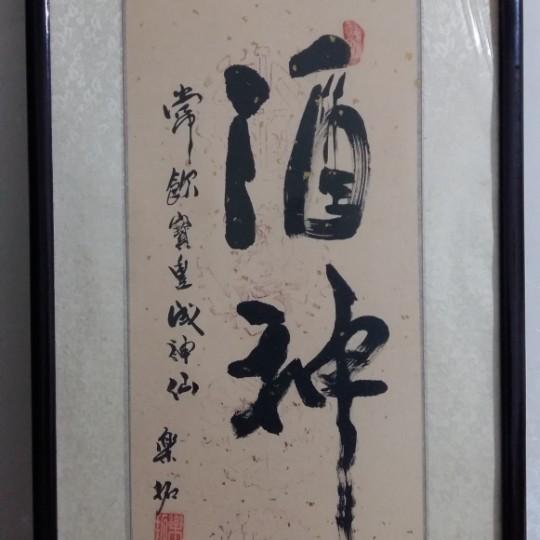 酒神
常飲寶豐成神仙
樂拓